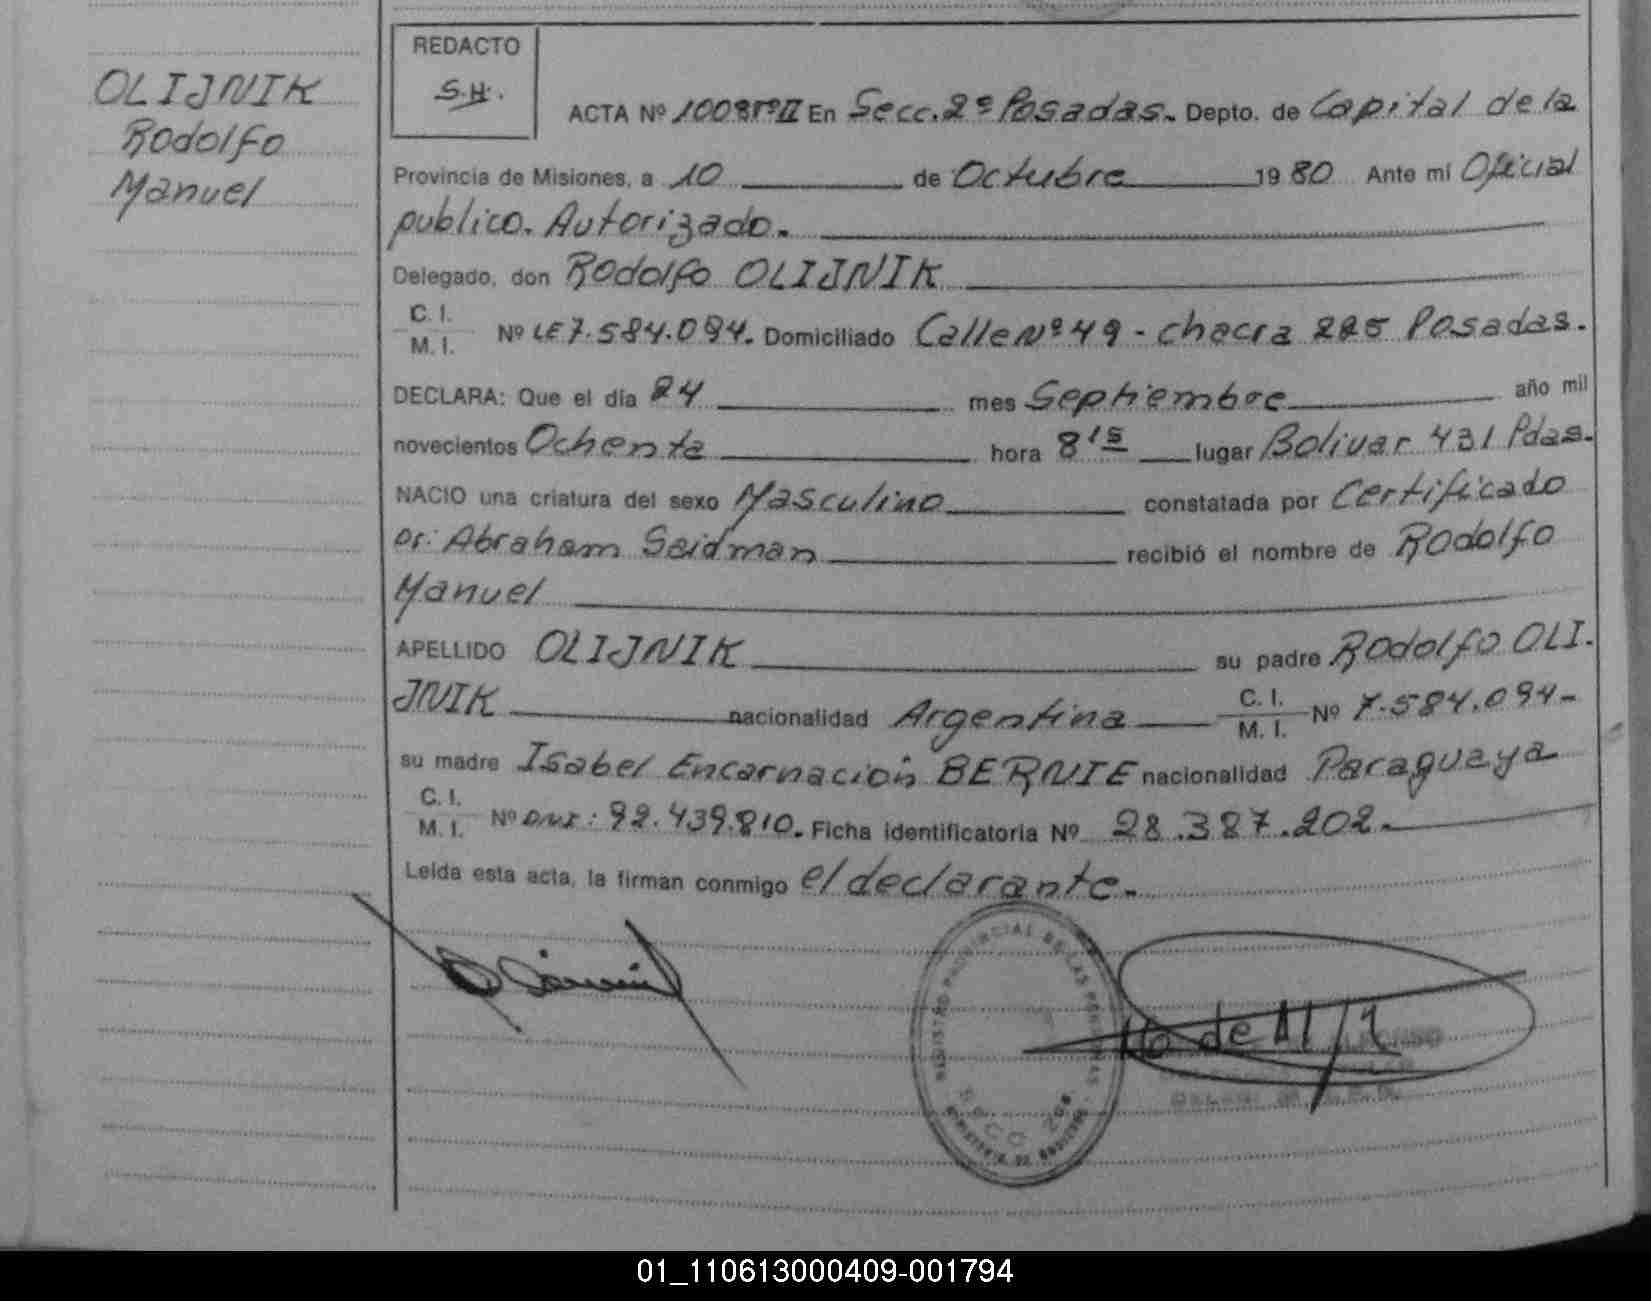 OLIJNIK
Rodolfo
Manuel
REDACTO
S.H.
ACTA Nº 1008 Tº II En Secc. 2º Posadas. Depto. de Capital de la
Provincia de Misiones, a 10 de Octubre 1980 Ante mi Oficial
publico. Autorizado.
Delegado, don Rodolfo OLIJNIK
C. I.
M. I. Nº LE 7.584.094. Domiciliado Calle Nº 49 - chacra 225 Posadas.
DECLARA: Que el día 24 mes Septiembre año mil
novecientos Ochenta hora 8'15 lugar Bolivar 431 Pdas.
NACIO una criatura del sexo Masculino constatada por Certificado
Dr: Abraham Seidman recibió el nombre de Rodolfo
Manuel
APELLIDO OLIJNIK su padre Rodolfo OLI.
JNIK nacionalidad Argentina C. I. M. I. Nº 7.584.094-
su madre Isabel Encarnación BERNIE nacionalidad Paraguaya
C. I.
M. I. Nº DNI: 92.439.810. Ficha identificatoria Nº 28.387.202.-
Leída esta acta, la firman conmigo el declarante.
REGISTRO PROVINCIAL DE LAS PERSONAS
SECC 2da.
MINISTERIO DE GOBIERNO
01_110613000409-001794